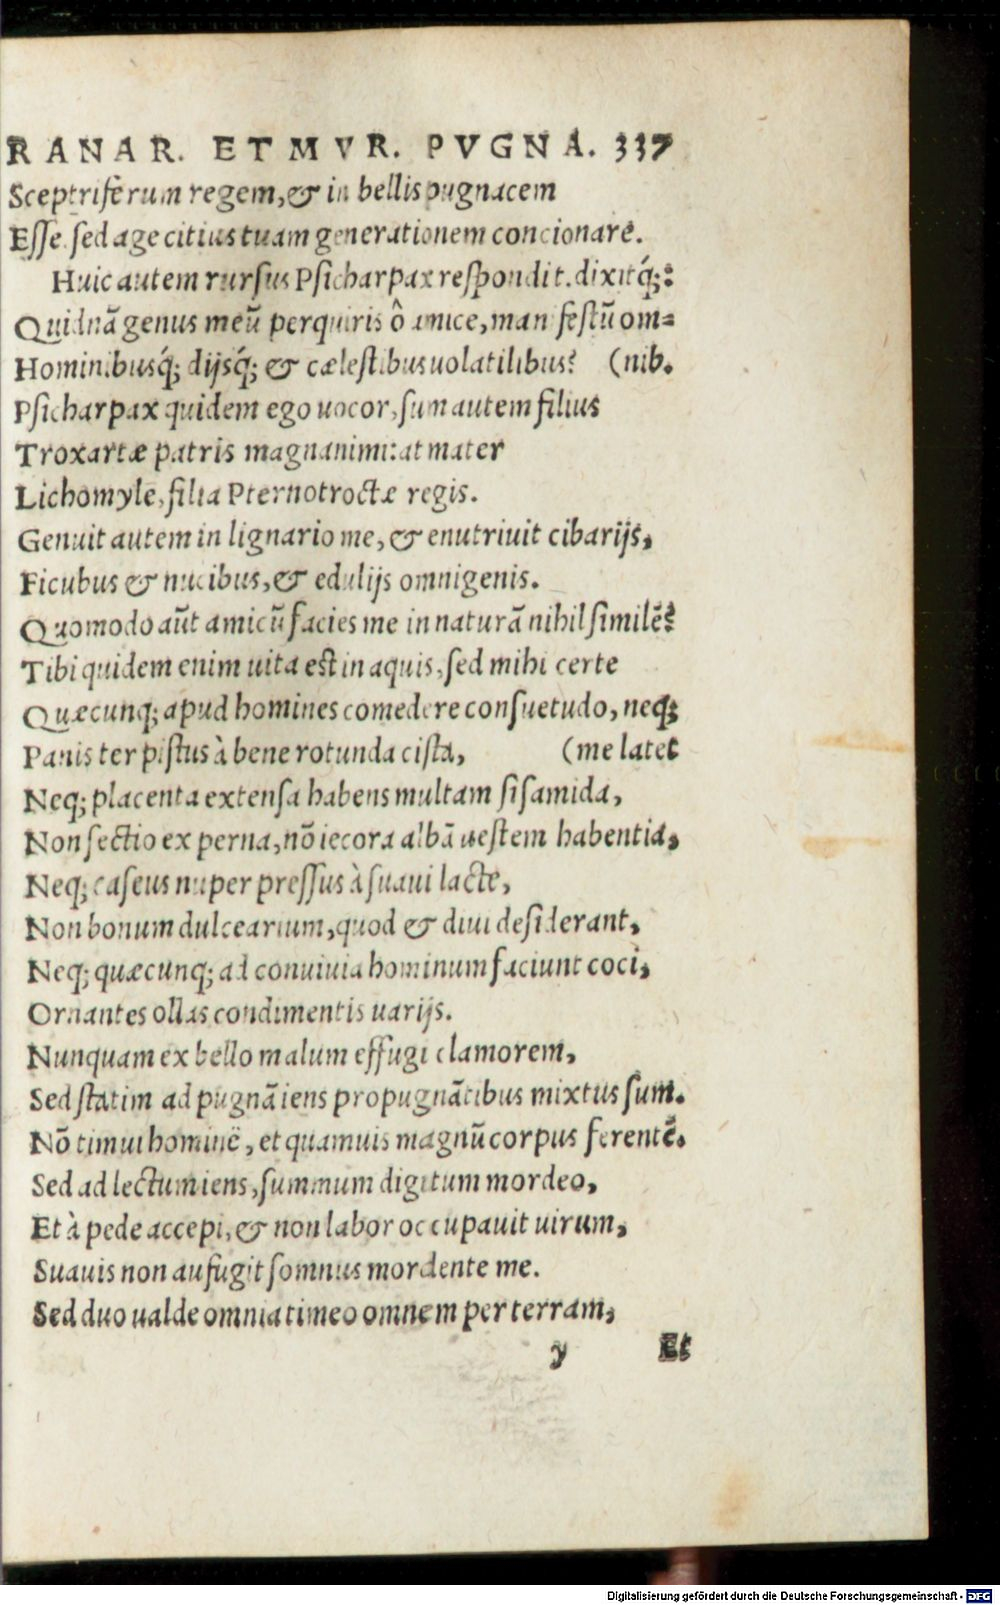 RANAR. ET MVR. PVGNA. 337
Sceptriferum regem, & in bellis pugnacem
Esse. sed age citius tuam generationem concionare.
Huic autem rursus Psicharpax respondit. dixitq́;:
Quidnã genus meũ perquiris ô amice, manifestũ om=
Hominibusq́; dijsq́; & cælestibus uolatilibus? (nib.
Psicharpax quidem ego uocor, sum autem filius
Troxartæ patris magnanimi: at mater
Lichomyle, filia Pternotroctæ regis.
Genuit autem in lignario me, & enutriuit cibarijs,
Ficubus & nucibus, & edulijs omnigenis.
Quomodo aũt amicũ facies me in naturã nihil similẽ?
Tibi quidem enim uita est in aquis, sed mihi certe
Quæcunq; apud homines comedere consuetudo, neq;
Panis ter pistus à bene rotunda cista, (me latet
Neq; placenta extensa habens multam sisamida,
Non sectio ex perna, nõ iecora albã uestem habentia,
Neq; caseus nuper pressus à suaui lacte,
Non bonum dulcearium, quod & diui desiderant,
Neq; quæcunq; ad conuiuia hominum faciunt coci,
Ornantes ollas condimentis uarijs.
Nunquam ex bello malum effugi clamorem,
Sed statim ad pugnã iens propugnãtibus mixtus sum.
Nõ timui hominẽ, et quamuis magnũ corpus ferentẽ.
Sed ad lectum iens, summum digitum mordeo,
Et à pede accepi, & non labor occupauit uirum,
Suauis non aufugit somnus mordente me.
Sed duo ualde omnia timeo omnem per terram,
y Et
Digitalisierung gefördert durch die Deutsche Forschungsgemeinschaft - DFG